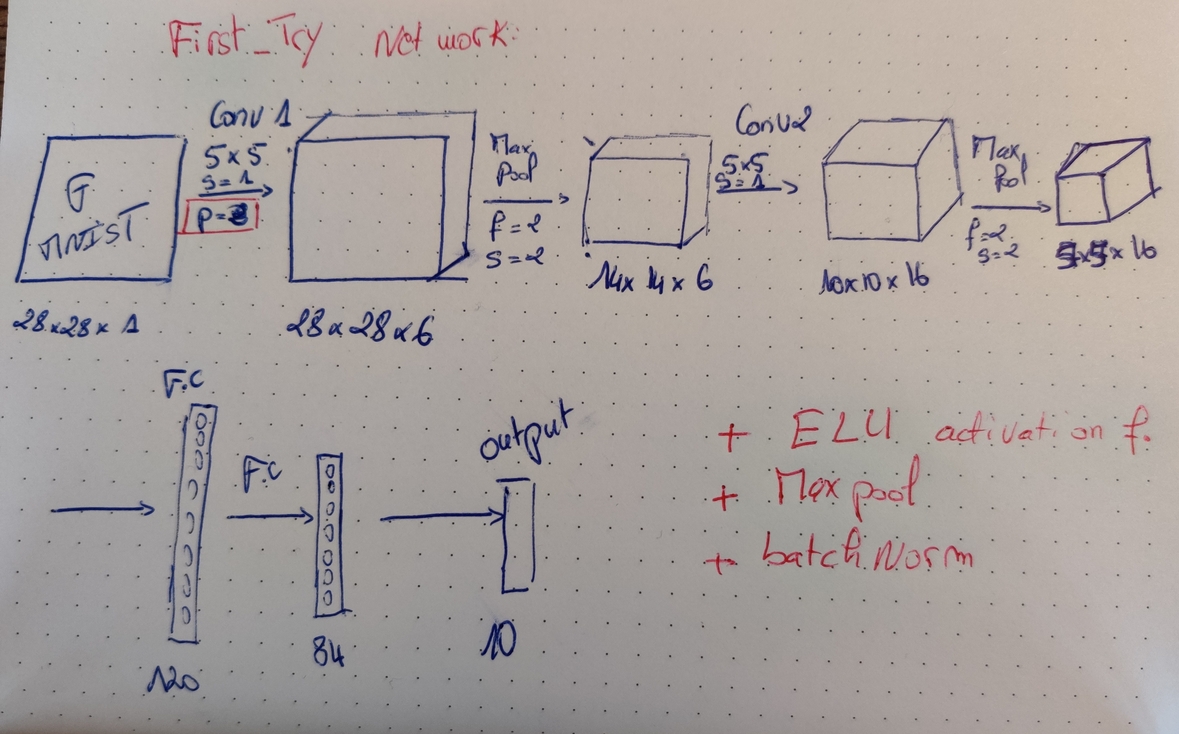 First_Try Network:
Conv 1
5x5
s=1
p=2
G
MNIST
28x28x1
28x28x6
Max
Pool
f=2
s=2
14x14x6
Conv2
5x5
s=1
10x10x16
Max
Pool
f=2
s=2
5x5x16
F.C
120
F.C
84
output
10
+ ELU activation f.
+ Max pool
+ batch Norm